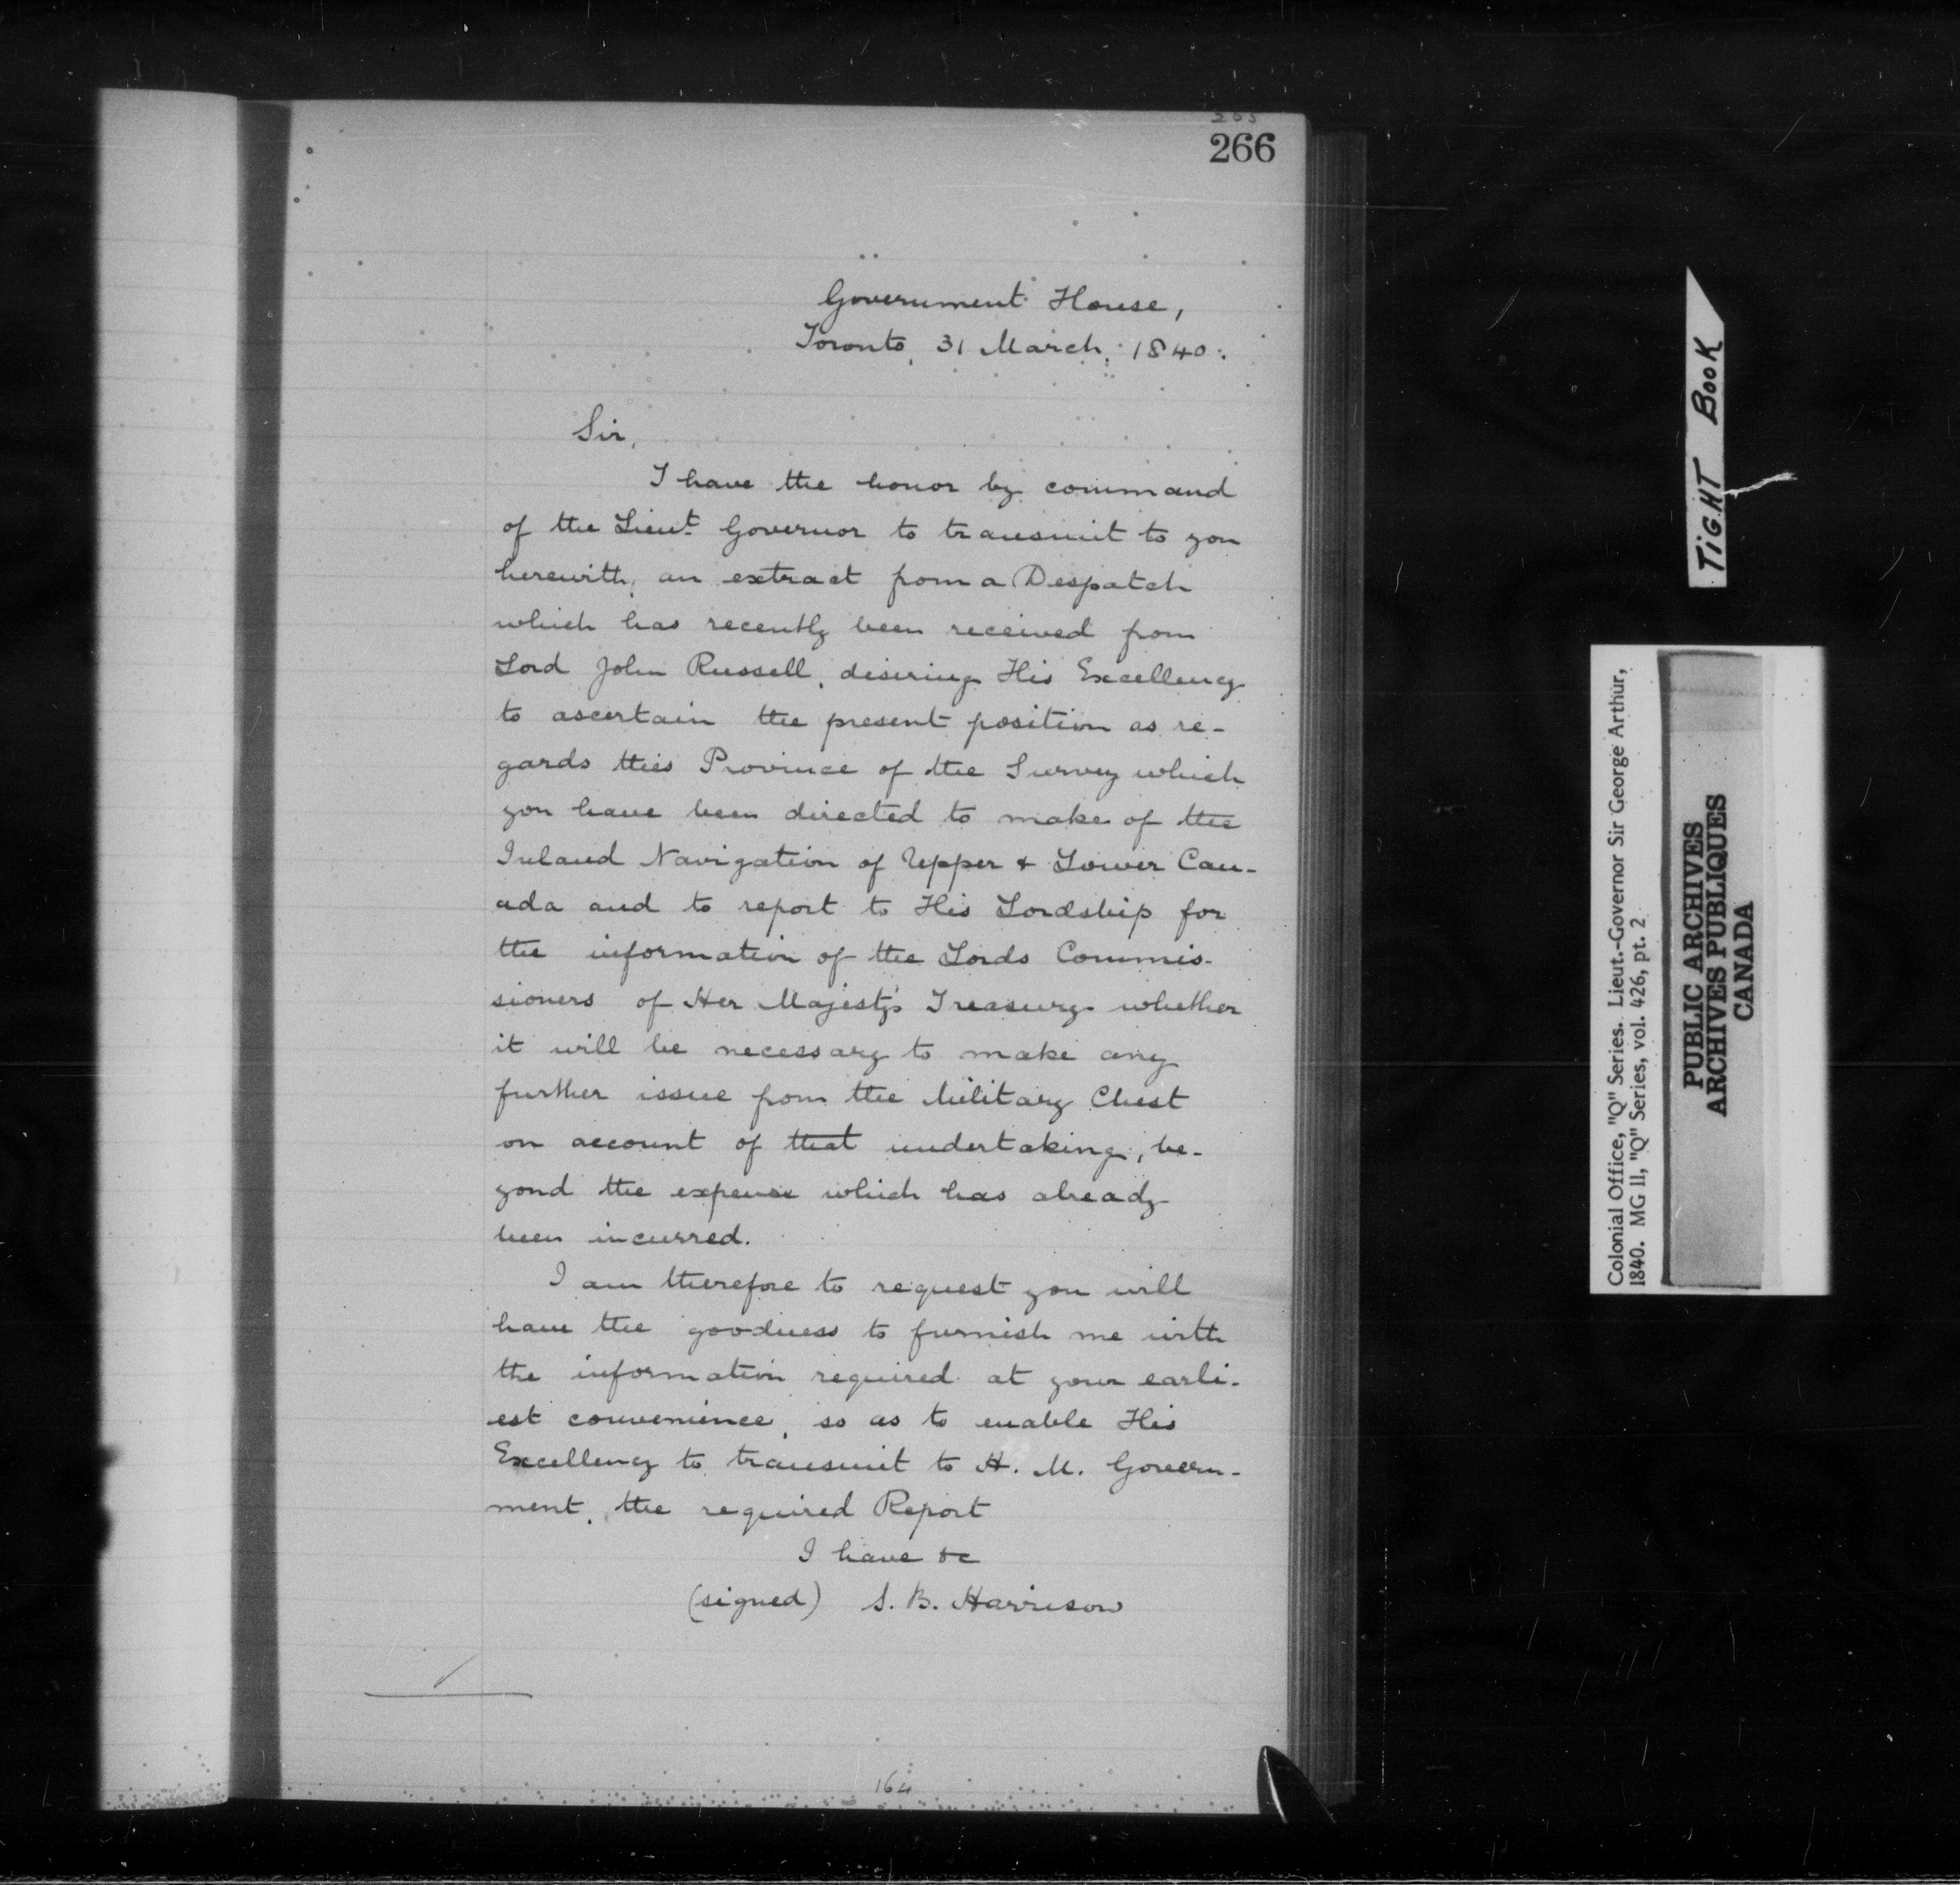 266
Government House,
Toronto, 31 March, 1840.
Sir,
I have the honor by command
of the Lieut. Governor to transmit to you
herewith, an extract from a Despatch
which has recently been received from
Lord John Russell, desiring His Excellency
to ascertain the present position as re-
gards this Province of the Survey which
you have been directed to make of the
Inland Navigation of Upper & Lower Can-
ada and to report to His Lordship for
the information of the Lords Commis-
sioners of Her Majesty's Treasury whether
it will be necessary to make any
further issue from the Military Chest
on account of that undertaking, be-
yond the expense which has already
been incurred.
I am therefore to request you will
have the goodness to furnish me with
the information required at your earli-
est convenience, so as to enable His
Excellency to transmit to H. M. Govern-
ment, the required Report
I have &c
(signed) S. B. Harrison
164
TIGHT BOOK
Colonial Office, "Q" Series. Lieut.-Governor Sir George Arthur,
1840. MG 11, "Q" Series, vol. 426, pt. 2
PUBLIC ARCHIVES
ARCHIVES PUBLIQUES
CANADA